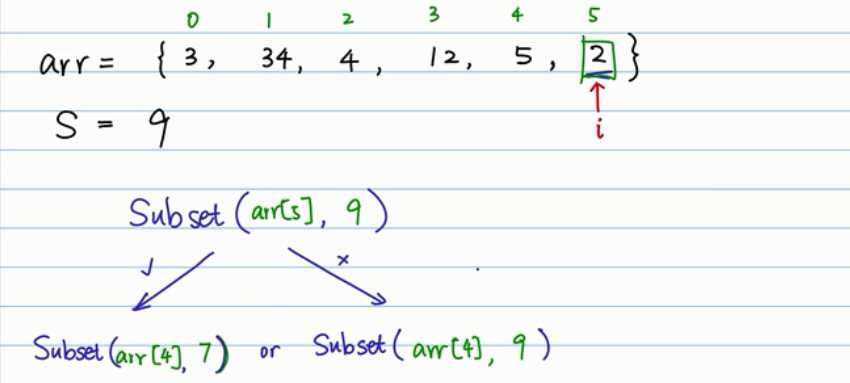 0 1 2 3 4 5
arr = { 3, 34, 4, 12, 5, 2 }
S = 9
i
Subset (arr[5], 9)
✓ ×
Subset (arr [4], 7) or Subset ( arr [4], 9 )